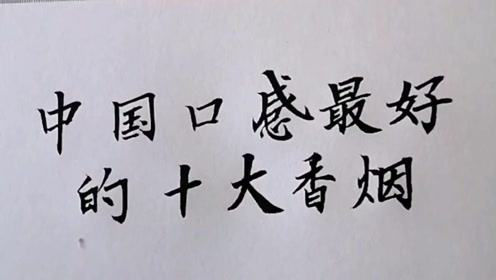 中国口感最好
的十大香烟